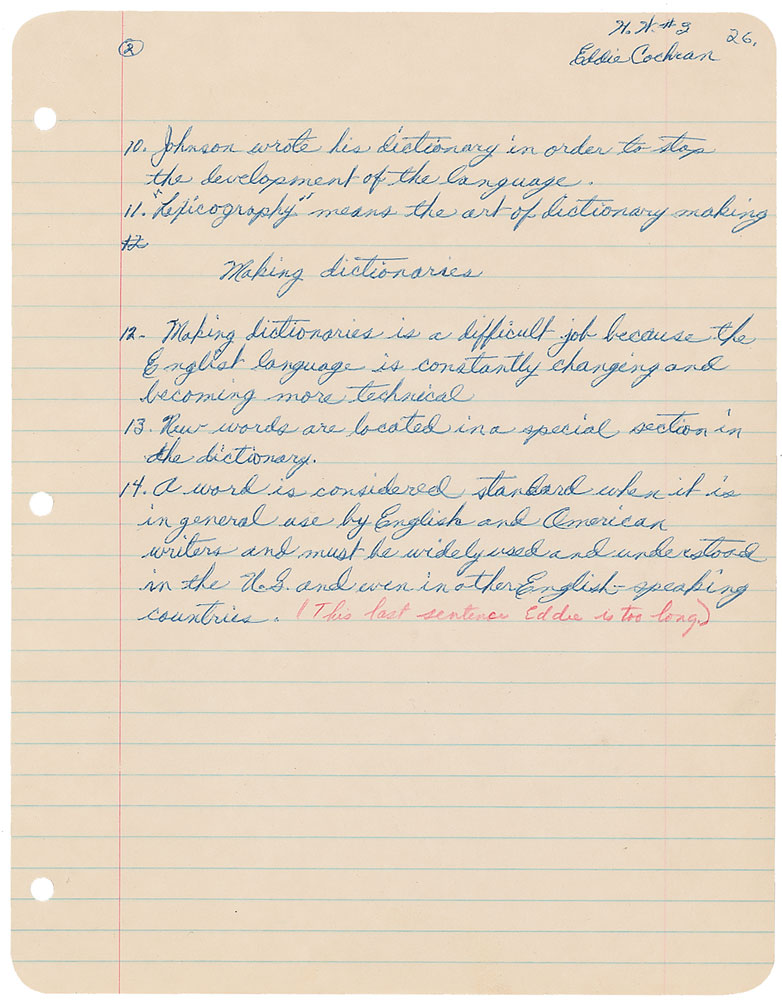 ② H. W. #3 26.
Eddie Cochran
10. Johnson wrote his dictionary in order to stop
the development of the language.
11. "Lexicography" means the art of dictionary making
12
Making dictionaries
12- Making dictionaries is a difficult job because the
English language is constantly changing and
becoming more technical
13. New words are located in a special section in
the dictionary.
14. A word is considered standard when it is
in general use by English and American
writers and must be widely used and understood
in the U.S. and even in other English-speaking
countries. (This last sentence Eddie is too long.)